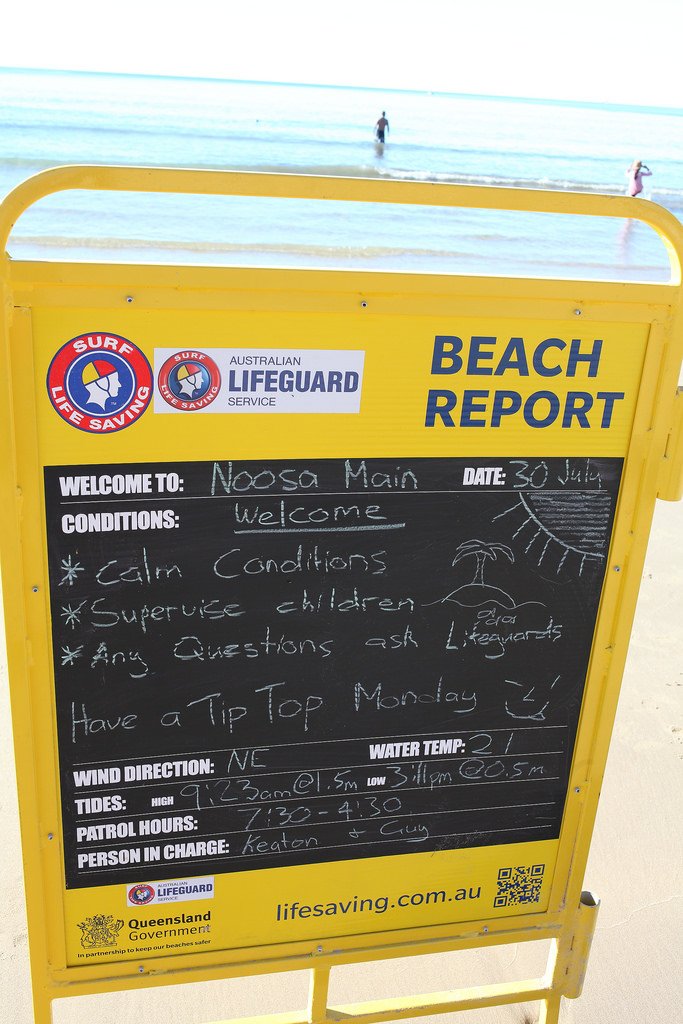 SURF LIFE SAVING
SURF LIFE SAVING
AUSTRALIAN
LIFEGUARD
SERVICE
BEACH
REPORT
WELCOME TO: Noosa Main DATE: 30 July
CONDITIONS: Welcome
* Calm Conditions
* Supervise children
* Any Questions ask Lifeguards
Have a Tip Top Monday
WIND DIRECTION: NE WATER TEMP: 21
TIDES: HIGH 9:23am @ 1.5m LOW 3:11pm @ 0.5m
PATROL HOURS: 7:30 - 4:30
PERSON IN CHARGE: Keaton + Guy
AUSTRALIAN
LIFEGUARD
SERVICE
Queensland
Government
In partnership to keep our beaches safer
lifesaving.com.au